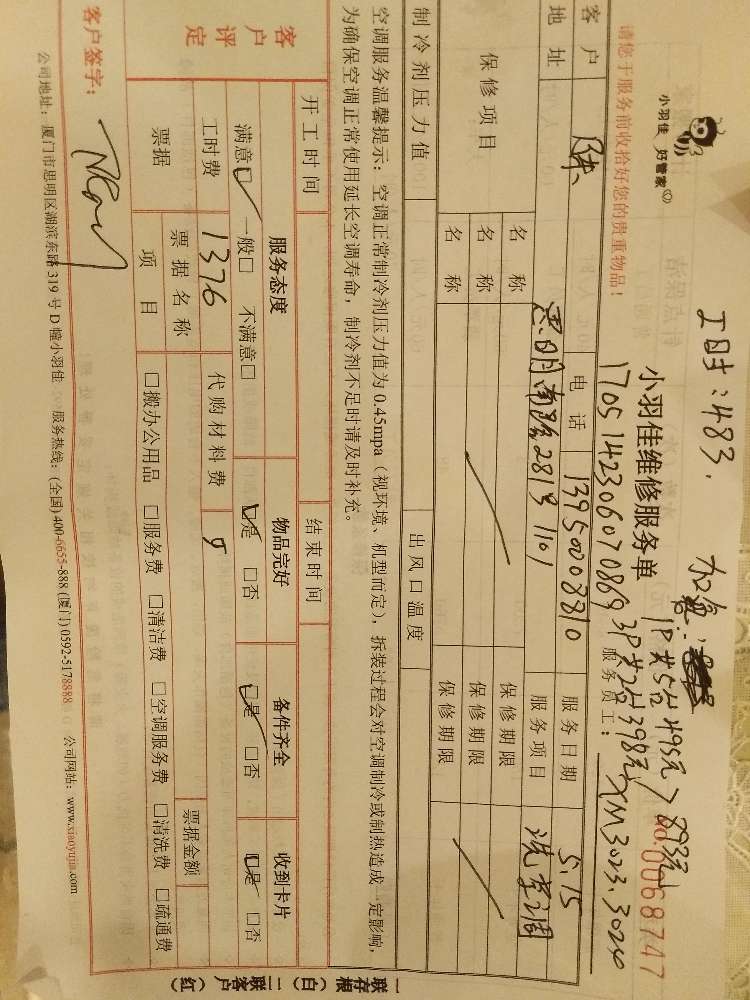 工时：483.
加资：
1P共5台495元 > 893元
3P共2台398元
小羽佳 好管家
小羽佳维修服务单
No.0068747
1705142306070869
请您于服务前收拾好您的贵重物品！
服务员工：XM3023.3024
客户 陈 电话 13950008810 服务日期 5.15
地址 281号1101 服务项目 洗空调
保修项目 名称 保修期限
名称 保修期限
名称 保修期限
制冷剂压力值 出风口温度
空调服务温馨提示：空调正常制冷剂压力值为0.45mpa（视环境、机型而定），拆装过程会对空调制冷或制热造成一定影响，
为确保空调正常使用延长空调寿命，制冷剂不足时请及时补充。
开工时间 结束时间
客户评定 服务态度 物品完好 备件齐全 收到卡片
满意□ 一般□ 不满意□ □是 □否 □是 □否 □是 □否
工时费 1376 代购材料费
票据 票据名称 票据金额
项目 □搬办公用品 □服务费 □清洁费 □空调服务费 □清洗费 □疏通费
客户签字：
公司地址：厦门市思明区湖滨东路319号D幢小羽佳 服务热线：(全国) 400-6655-888 (厦门) 0592-5178888 公司网站：www.xiaoyujia.com
一联存根（白） 二联客户（红）